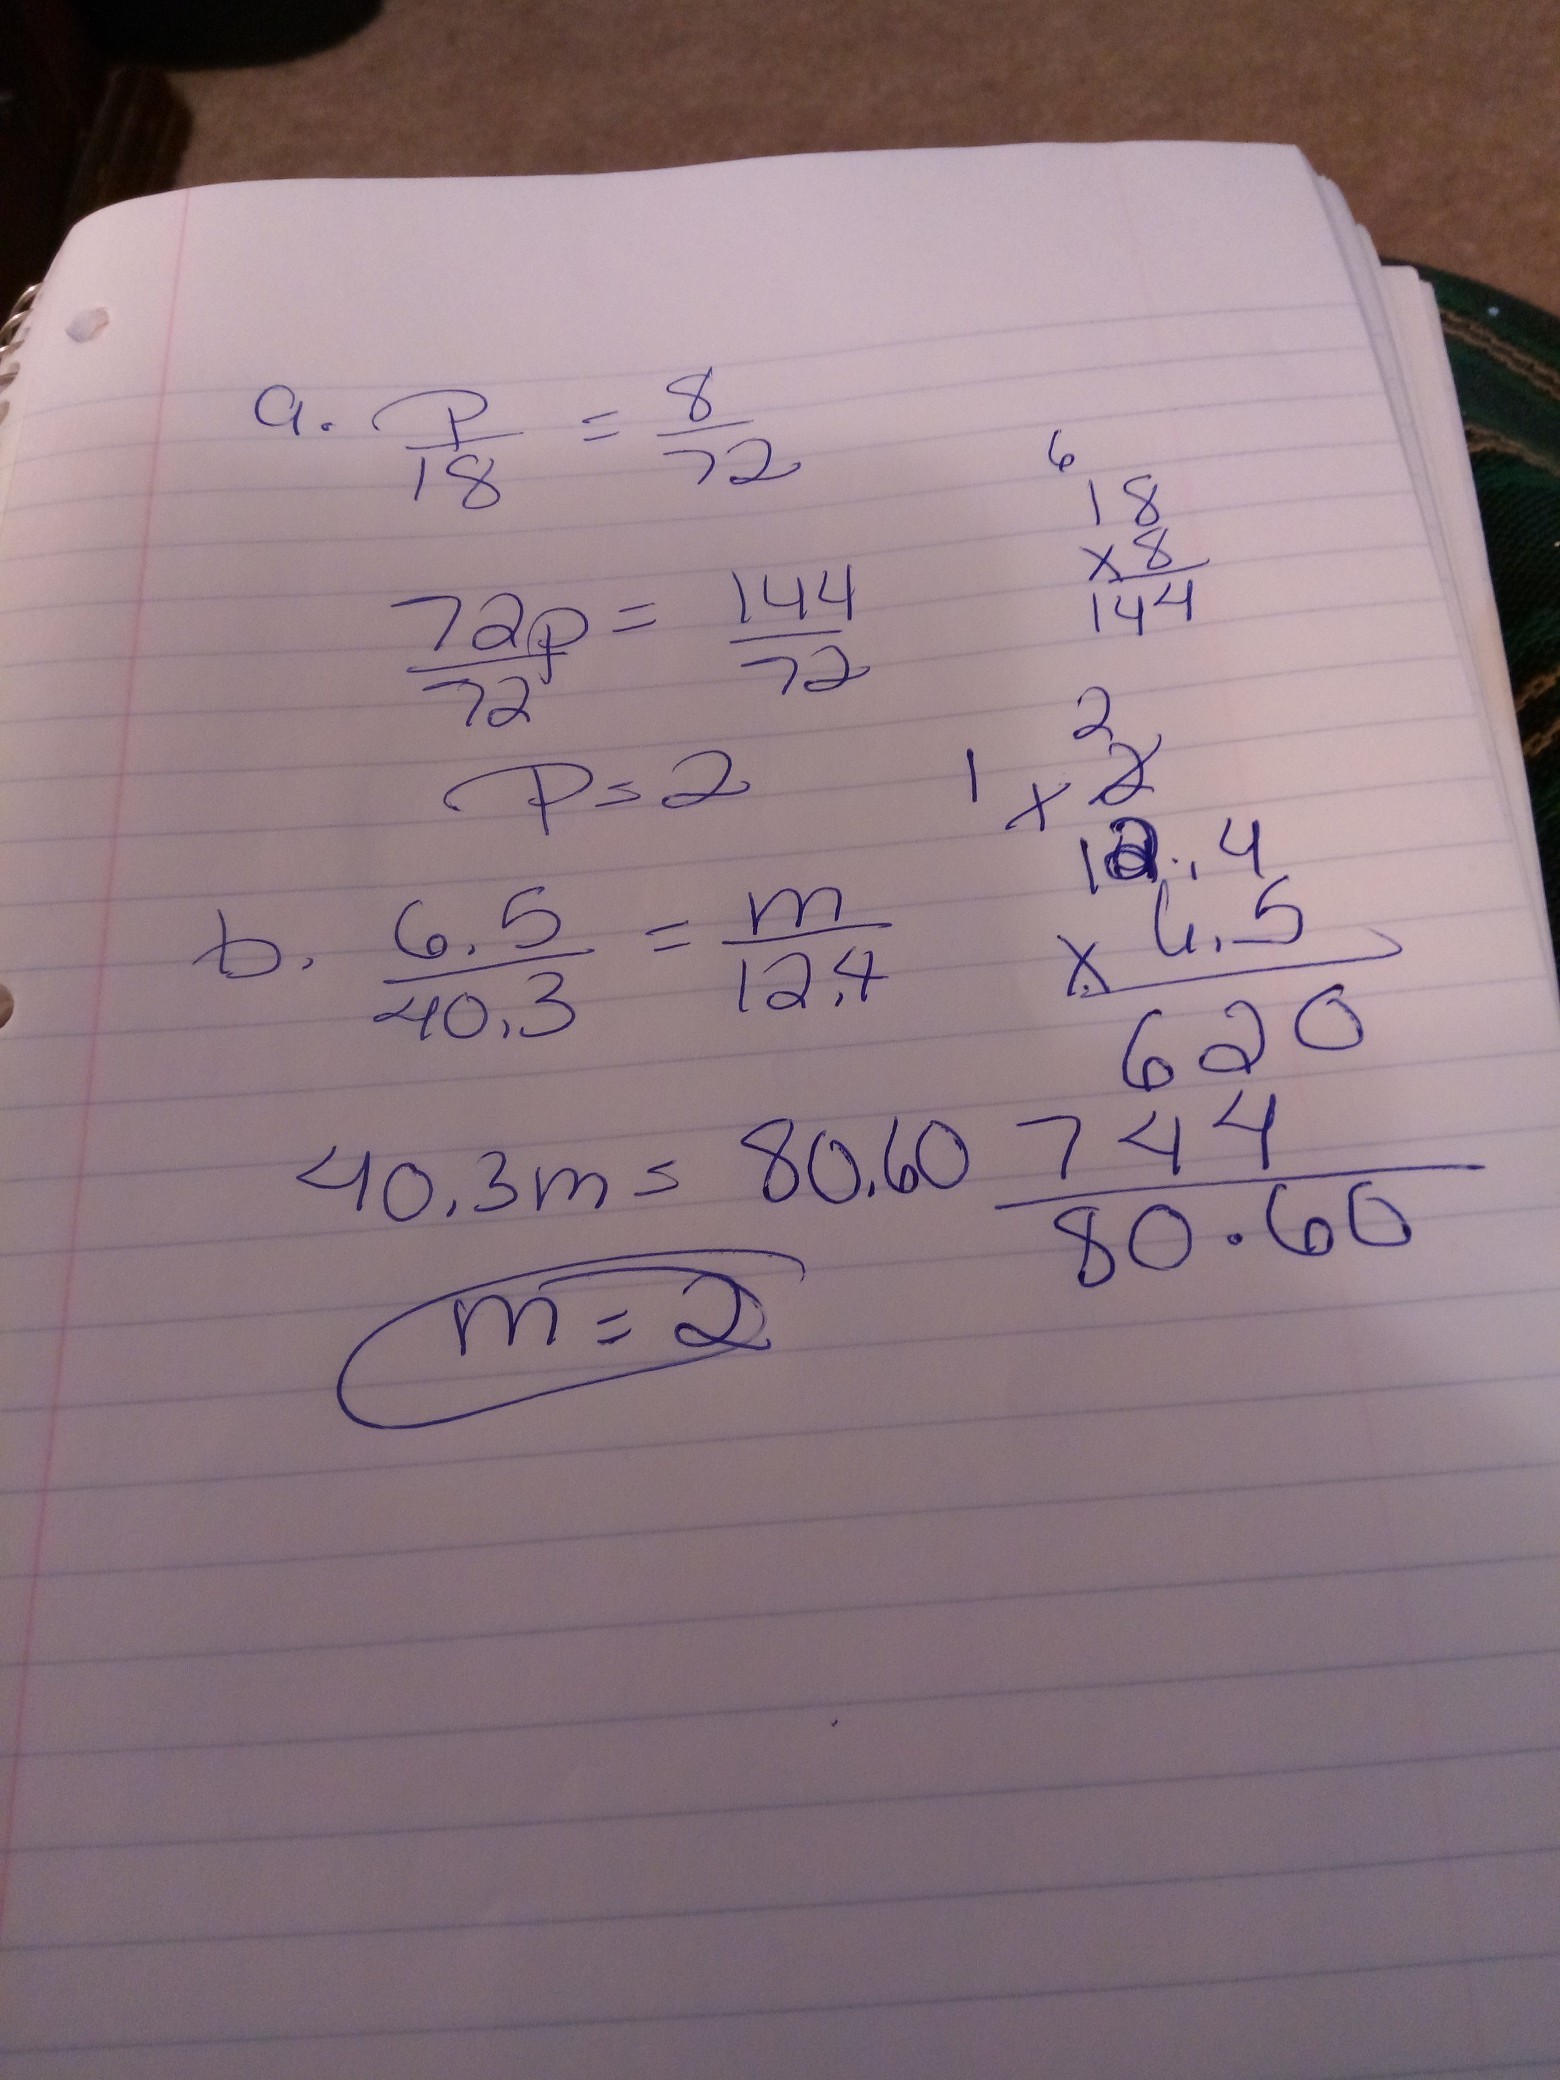 a. P/18 = 8/72
72p/72 = 144/72
P = 2
b. 6.5/40.3 = m/12.4
40.3m = 80.60
m = 2
6
18
x 8
144
2
1 x 2
12.4
x 6.5
620
744
80.60